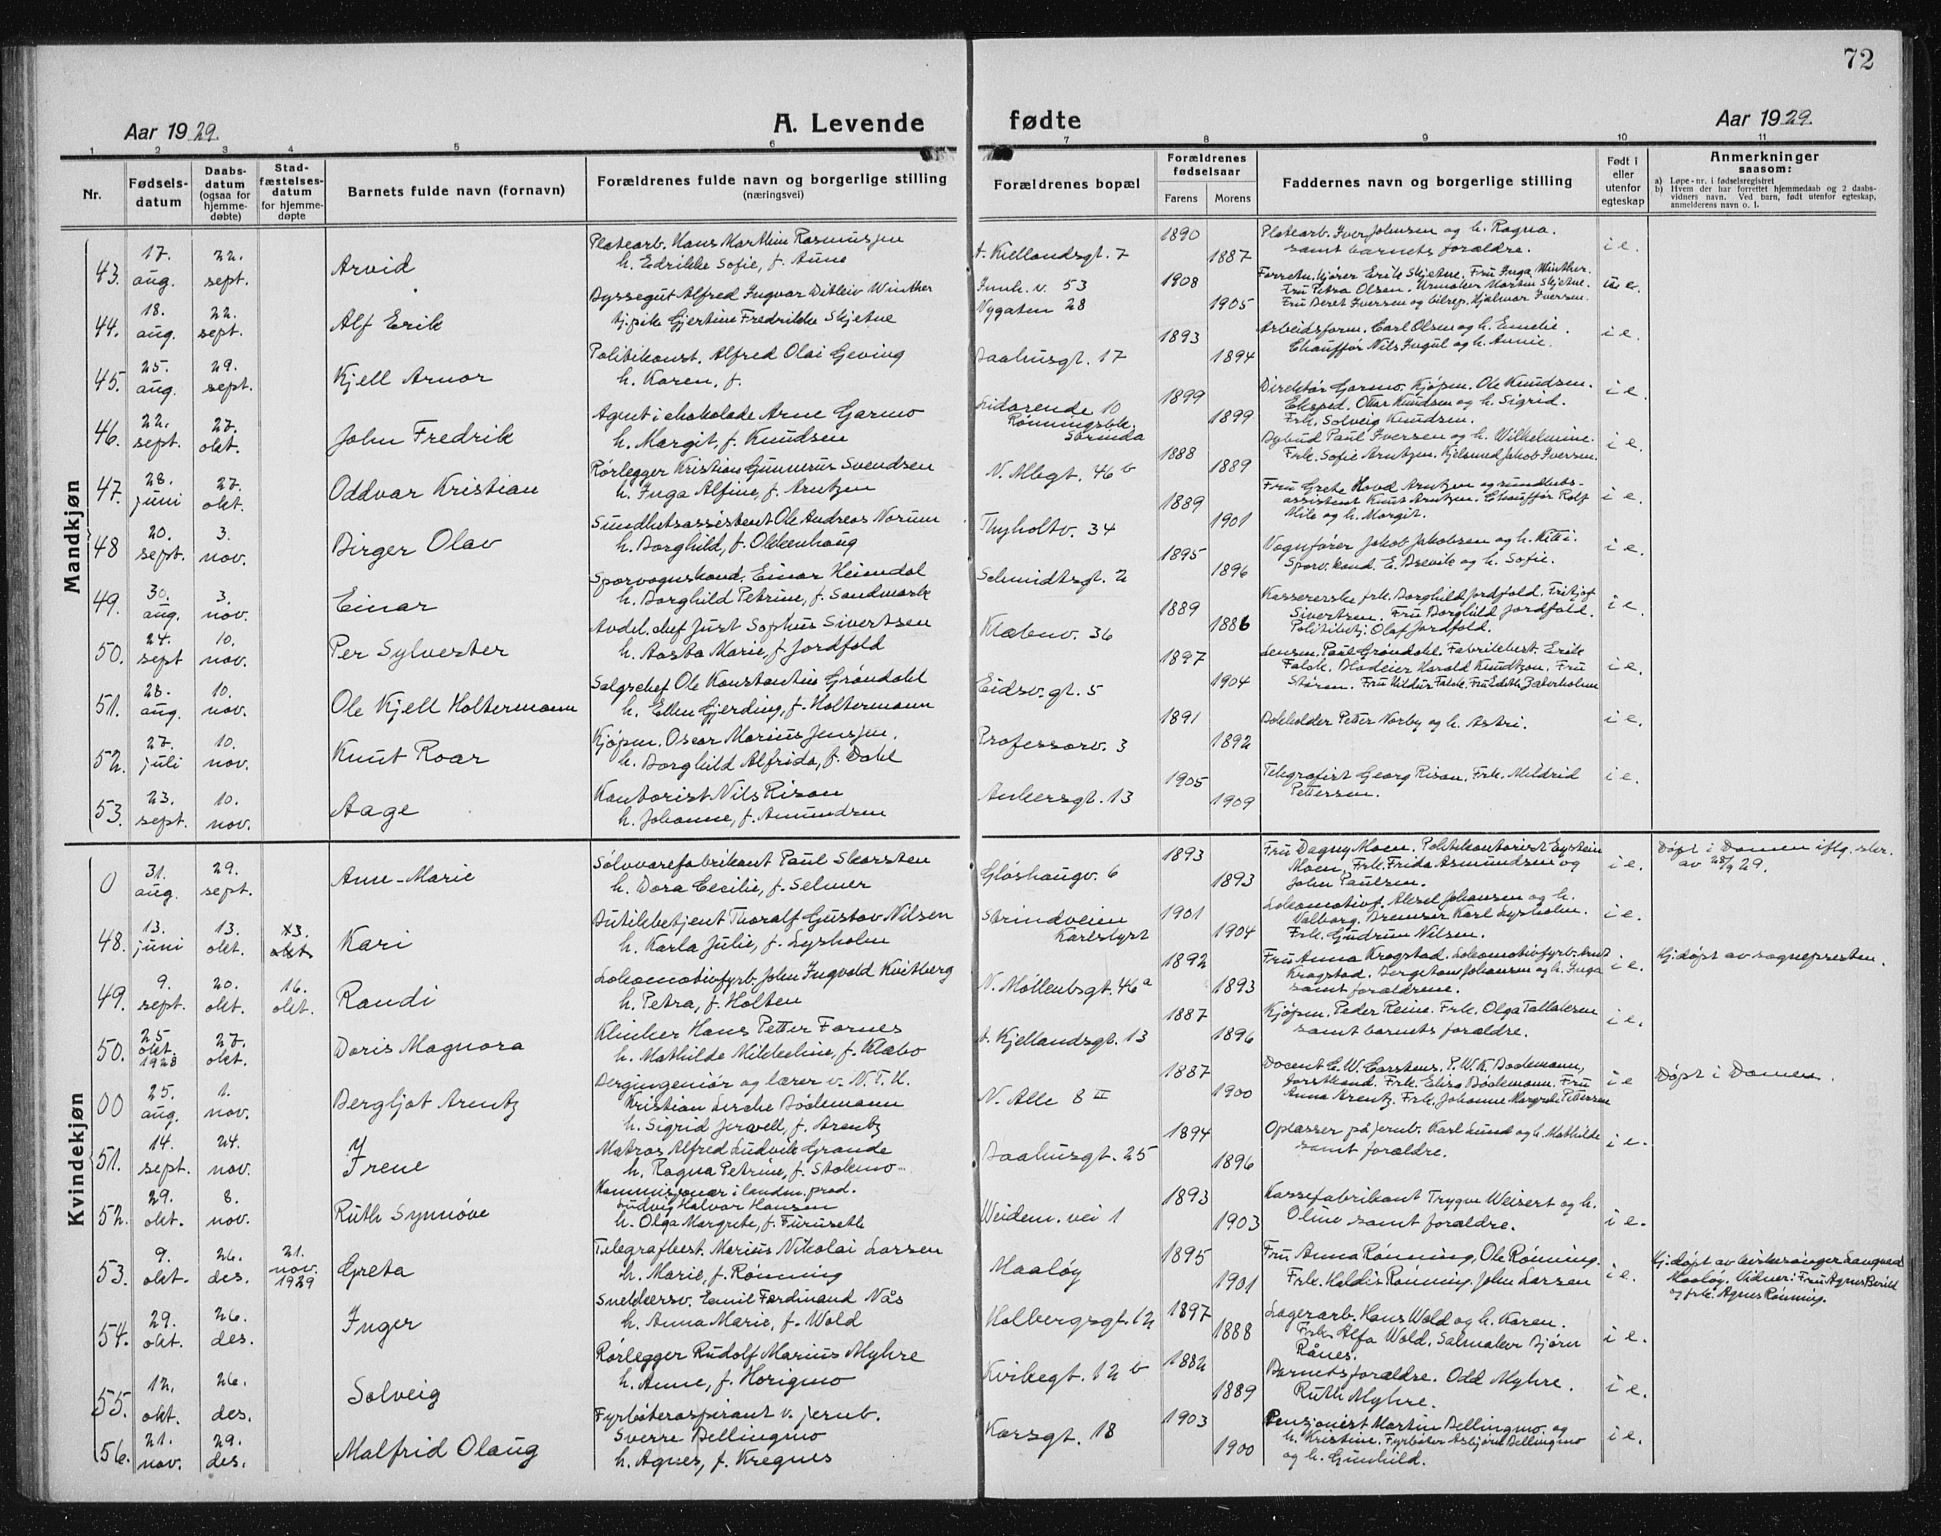 72
Aar 1929.
A. Levende
fødte
Aar 1929.
1 2 3 4 5 6 7 8 9 10 11
Nr.
Fødsels-
datum
Daabs-
datum
(ogsaa for
hjemme-
døbte)
Stad-
fæstelses-
datum
for hjemme-
døpte
Barnets fulde navn (fornavn)
Forældrenes fulde navn og borgerlige stilling
(næringsvei)
Forældrenes bopæl
Forældrenes
fødselsaar
Farens
Morens
Faddernes navn og borgerlige stilling
Født i
eller
utenfor
egteskap
Anmerkninger
saasom:
a) Løpe-nr. i fødselsregistret
b) Hvem der har forrettet hjemmedaab og 2 daabs-
vidners navn. Ved barn, født utenfor egteskap,
anmelderens navn o. l.
Mandkjøn
43. 17. aug. 22. sept. Arvid
Platearb. Hans Marthin Rasmussen
h. Edrikke Sofie, f. Aune
A. Kiellandsgt. 7
1890 1887
Platearb. Iver Johnsen og h. Ragna.
samt barnets forældre.
i e.
44. 18. aug. 22. sept. Alf Erik
Dyssegut Alfred Ingvar Ditlev Winther
tj.pike Gjertine Fredrikke Skjetne
Innh. v. 53
Nygaten 28
1908 1905
Forretn.kjører Erik Skjetne. Fru Inga Winther.
Fru Petra Olsen. Urmaker Morten Skjetne.
Fru Beret Iversen og bilrep. Hjalmar Iversen.
u e.
45. 25. aug. 29. sept. Kjell Arnor
Politikonst. Alfred Olai Geving
h. Karen, f.
Daahusgt. 17
1893 1894
Arbeidsform. Carl Olsen og h. Emelie.
Chauffør Nils Ingul og h. Annie.
i e.
46. 22. sept. 27. okt. John Fredrik
Agent i chokolade Arne Garmo
h. Margit, f. Knudsen
Lidarende 10
Rønningsbk.
Strinda
1899 1899
Direktør Garmo. Kjøpm. Ole Knudsen.
Eksped. Ottar Knudsen og h. Sigrid.
Frk. Solveig Knudsen.
i e.
47. 28. juni 27. okt. Oddvar Kristian
Rørlegger Kristian Gunnerus Svendsen
h. Inga Alfine, f. Arntzen
N. Allegt. 46 b
1888 1889
Bybud Paul Iversen og h. Wilhelmine.
Frk. Sofie Arntzen. Hjelsmed Jakob Iversen.
i e.
48 20. sept. 3. nov. Birger Olav
Sundhetsassistent Ole Andreas Norum
h. Borghild, f. Olkkenhaug
Thyholtv. 34
1889 1901
Fru Grete Hovd Arntzen og sundhets-
assistent Knut Arntzen. Chauffør Rolf
Mile og h. Margit.
i e.
49. 30. aug. 3. nov. Einar
Sporvognskond. Einar Heimdal
h. Borghild Petrine, f. Sandmark
Schmidtsgt. 2
1895 1896
Vognfører Jakob Jakobsen og h. Kitti.
Sporv.kond. E. Brevik og h. Sofie.
i e.
50. 24. sept 10. nov. Per Sylvester
Avdel.chef Just Sophus Sivertsen
h. Aasta Marie, f. Jordfald
Klæbuv. 36
1889 1886
Kassererske frk. Borghild Jordfald. Fritjof
Sivertsen. Fru Borghild Jordfald.
Politibetj. Olaf Jordfald.
i e.
51. 28. aug. 10. nov. Ole Kjell Holtermann
Salgschef Ole Konstantin Grøndahl
h. Ellen Gjerding, f. Holtermann
Eidsv. gt. 5
1897 1904
Jensen. Paul Grøndahl. Fabrikbest. Erik
Falck. Bladeier Harald Knudtzon. Fru
Støren. Fru Hildur Falck. Fru Edith Zakerholm
i e.
52. 27. juli 10. nov. Knut Roar
Kjøpm. Oscar Marius Jenssen.
h. Borghild Alfrida, f. Dahl
Professorv. 3
1891 1892
Bokholder Petter Norby og h. Astri.
i e.
53. 23. sept. 10. nov. Aage
Kontorist Nils Risan
h. Johanne, f. Amundsen
Ankersgt. 13
1905 1909
Telegrafist Georg Risan. Frk. Mildrid
Pettersen.
i e.
Kvindekjøn
0 31. aug. 29. sept. Ann-Marie
Sølvvarefabrikant Paul Skarsten
h. Dora Cecilie, f. Selmer
Gløshaugv. 6
1893 1893
Fru Dagny Moen. Politikontorist Eystein
Moen. Frk. Frida Asmundsen og
John Paulsen.
i e.
Døpt i Domen iflg. skr.
av 28/9 29.
48. 13. juni 13. okt. 13. okt Kari
Butikbetjent Thoralf Gustav Nilsen
h. Karla Julie, f. Lysholm
Strindveien
Karlslyst
1901 1904
Lokomotivf. Aksel Johansen og h.
Valborg. Bremser Karl Lysholm.
Frk. Gudrun Nilsen.
i e.
49. 9. sept. 20. okt. 16. okt. Randi
Lokomotivfyrb. John Ingvald Kvitberg
h. Petra, f. Holten
N. Møllenbgt. 46 a
1892 1893
Fru Anna Krogstad. Lokomotivfyrb. Knut
Krogstad. Bergetom Johansen og h. Inga
samt forældrene.
i e.
Hj.døpt av sognepresten.
50. 25 okt. 1928 27. okt. Doris Magnora
Klinker Hans Petter Fornes
h. Mathilde Mikkeline, f. Klæbo
A. Kjellandsgt. 13
1887 1896
Kjøpm. Peder Reine. Frk. Olga Tallaksen
samt barnets forældre.
i e.
00 25. aug. 1. nov. Bergljot Arentz
Bergingeniør og lærer v. N.T.H.
Kristian Lerche Bødemann
h. Sigrid Jervell, f. Arentz
N. Alle 8 II
1887 1900
Docent C. W. Carstens. P. W. K. Bødemann,
forstkand. Frk. Elisa Bødemann. Fru
Anna Arentz. Frk. Johanne Margrete Pettersen
i e
Døpt i Domen.
51. 14. sept. 24. nov. Irene
y
Matros Alfred Ludvik Grande
h. Ragna Petrine, f. Stokmo
Daahusgt. 25
1894 1896
Opasser på jernb. Karl Lund og h. Mathilde
samt forældre.
i e.
52. 29. okt. 8. nov. Ruth Synnøve
Kommisjonær i landm. prod.
Ludvig Halvor Hansen
h. Olga Margrete, f. Furuseth
Weidem. vei 1
1893 1903
Kassefabrikant Trygve Weisert og h.
Oline samt forældre.
i e.
53. 9. okt. 26. des. 21. nov. 1929 Greta
Telegrafbest. Marius Nikolai Larsen
h. Marie, f. Rønning
Maaløy
1895 1901
Fru Anna Rønning, Ole Rønning.
Frk. Haldis Rønning. John Larsen
i e.
Hj.døpt av kirkesanger Langvad
Maaløy. Vidner: Fru Agnes Berild
og frk. Agnes Rønning.
54. 29. okt 26. des. Inger
Snekkersv. Emil Ferdinand Nås
h. Anna Marie, f. Wold
Holbergsgt. 12
1897 1888
Lagerarb. Hans Wold og h. Karen.
Frk. Alfa Wold. Salmaker Bjørn
Rånes.
i e.
55. 12. okt. 26. des. Solveig
Rørlegger Rudolf Marius Myhre
h. Anne, f. Horigmo
Kvikegt. 12 b
1882 1889
Barnets forældre. Odd Myhre.
Ruth Myhre.
i e.
56. 21. nov. 29. des. Malfrid Olaug
Fyrbøteraspirant v. jernb.
Sverre Bellingmo
h. Agnes, f. Kregnes
Korsgt. 18
1903 1900
Pensjonist Martin Bellingmo. og
h. Kristine. Fyrbøter Asbjørn Bellingmo
og h. Gunhild.
i e.